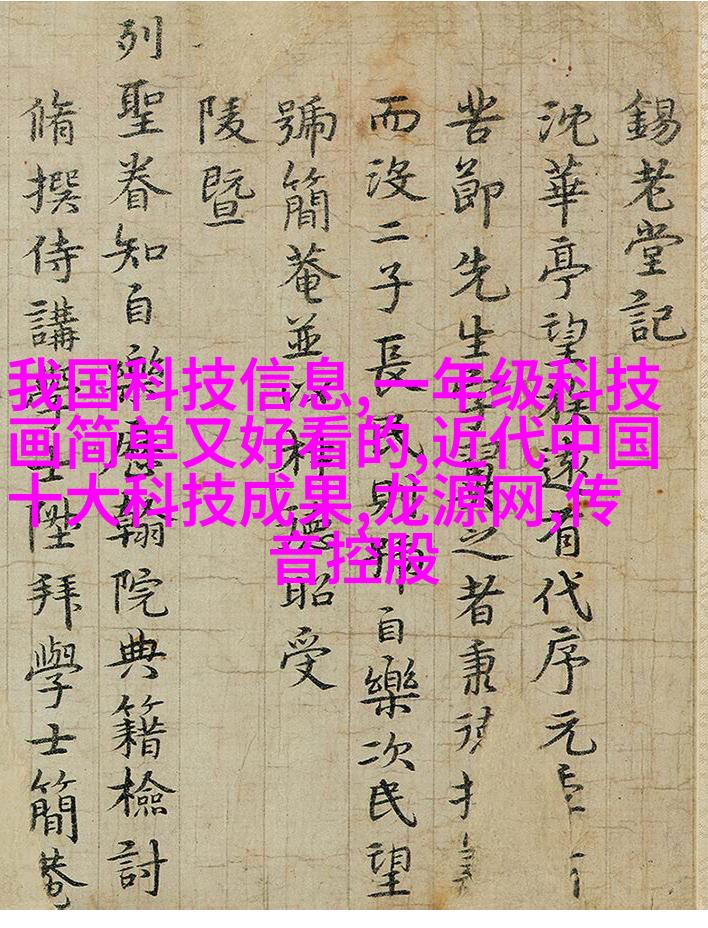 錫老堂記
沈華亭望族遠有代序元
苦節先生之者秉
而沒二子長民則號自樂次民望
號簡菴並以聰昭受
陵暨
列聖眷知自樂歷翰院典籍檢討
脩撰侍講學士陞拜學士簡菴
我国科技信息,一年级科技
画简单又好看的,近代中国
十大科技成果,龙源网,传
音控股